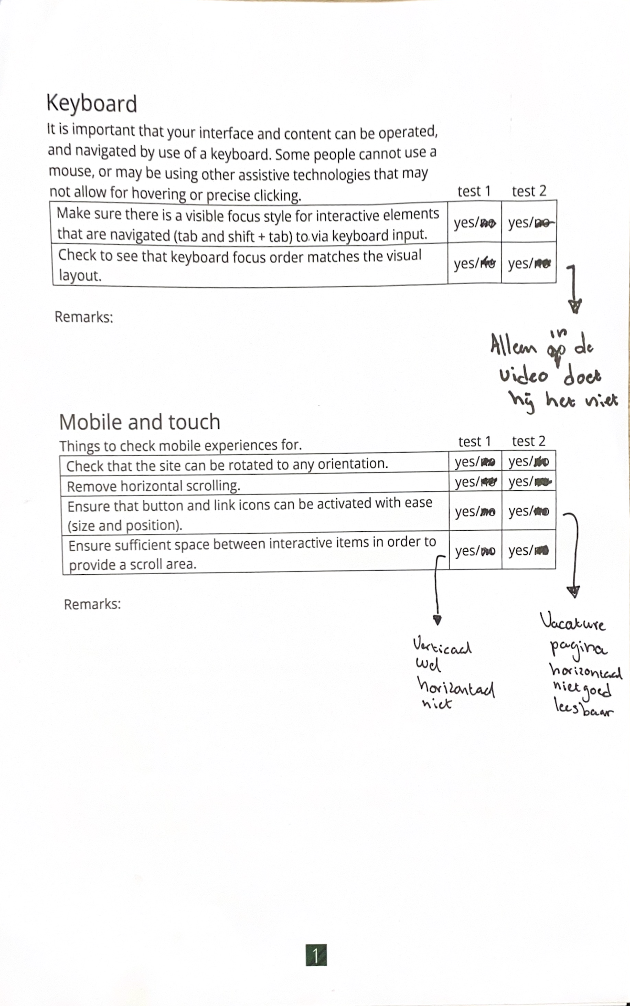 Keyboard
It is important that your interface and content can be operated,
and navigated by use of a keyboard. Some people cannot use a
mouse, or may be using other assistive technologies that may
not allow for hovering or precise clicking.
test 1 test 2
Make sure there is a visible focus style for interactive elements
that are navigated (tab and shift + tab) to via keyboard input.
yes/no yes/no
Check to see that keyboard focus order matches the visual
layout.
yes/no yes/no
Remarks:
in
Alleen op de
video doet
hij het niet
Mobile and touch
Things to check mobile experiences for.
test 1 test 2
Check that the site can be rotated to any orientation.
yes/no yes/no
Remove horizontal scrolling.
yes/no yes/no
Ensure that button and link icons can be activated with ease
(size and position).
yes/no yes/no
Ensure sufficient space between interactive items in order to
provide a scroll area.
yes/no yes/no
Remarks:
Verticaal
wel
horizontaal
niet
Vacature
pagina
horizontaal
niet goed
leesbaar
1